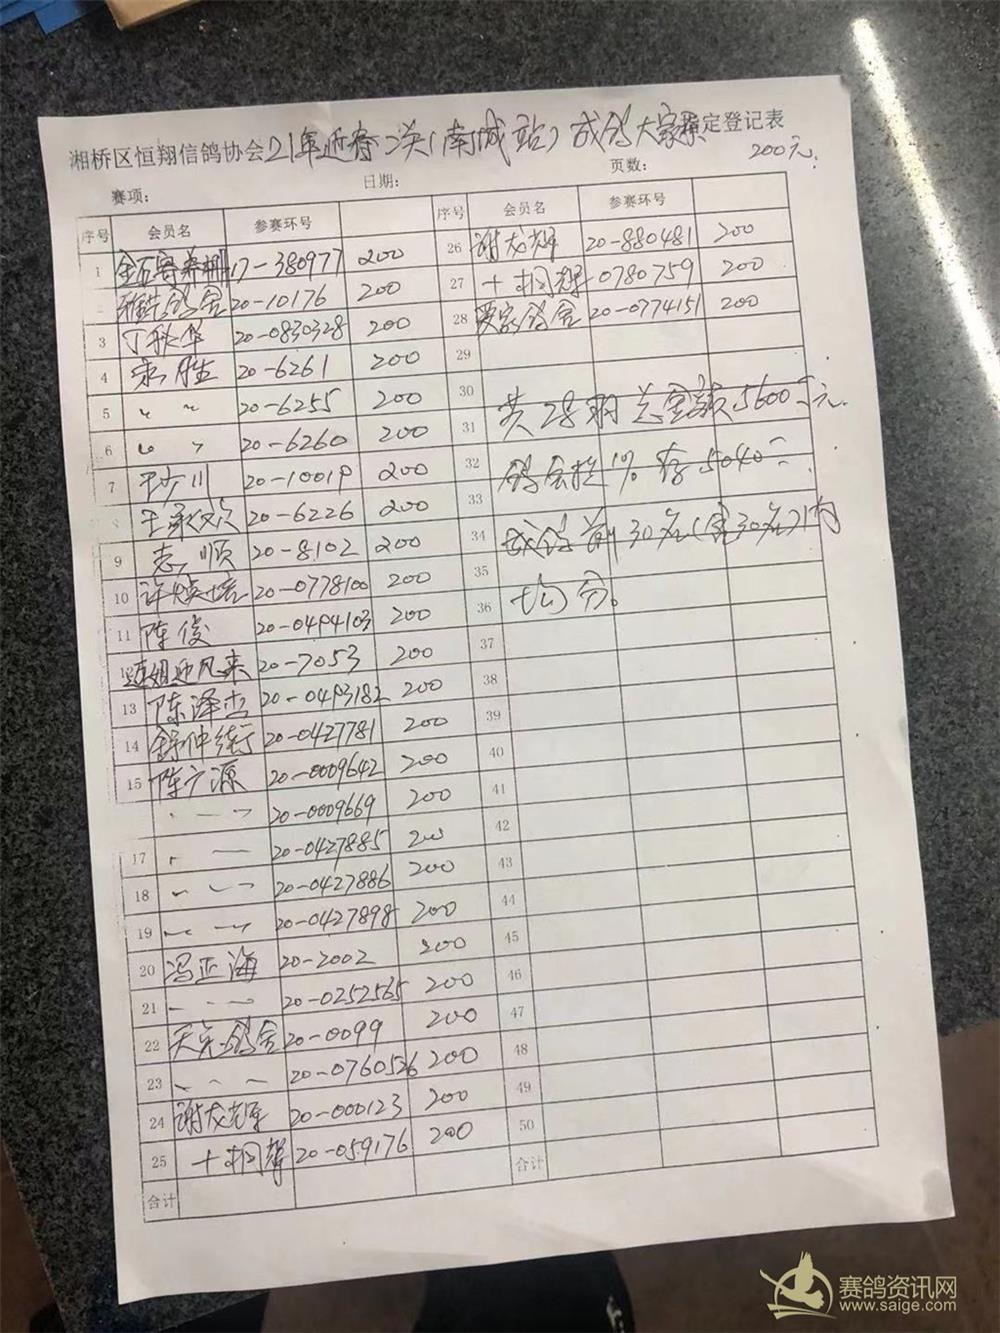 湘桥区恒翔信鸽协会21年迎春二关(南城站)成鸽大家指定登记表
200元.
赛项: 日期: 页数:
序号 会员名 参赛环号 序号 会员名 参赛环号
1 金石寄养棚 17-380977 200
鸽舍 20-10176 200
3 丁秋华 20-0830328 200
4 胜 20-6261 200
5 〃 〃 20-6255 200
6 〃 〃 20-6260 200
7 川 20-10019 200
王 20-6226 200
9 志顺 20-8102 200
10 许 20-0778100 200
11 陈俊 20-0494103 200
迎风来 20-7053 200
13 陈泽杰 20-0493182 200
14 仲 20-0427781 200
15 陈广源 20-0009642 200
〃 — 〃 20-0009669 200
17 〃 — 〃 20-0427885 200
18 〃 — 〃 20-0427886 200
19 〃 — 〃 20-0427898 200
20 冯正海 20-2002 200
21 〃 — 〃 20-0252565 200
22 鸽舍 20-0099 200
23 〃 — 〃 20-0760526 200
24 谢友辉 20-000123 200
25 十相 20-059176 200
合计
26 谢友辉 20-880481 200
27 十相 -0780759 200
28 贾家鸽舍 20-0774151 200
29
30
31 共28羽总金额5600元.
32
33 鸽会抽1% 存5040元.
34 成鸽前30名(含30名)内
35
36 均分。
37
38
39
40
41
42
43
44
45
46
47
48
49
50
合计
赛鸽资讯网
www.saige.com